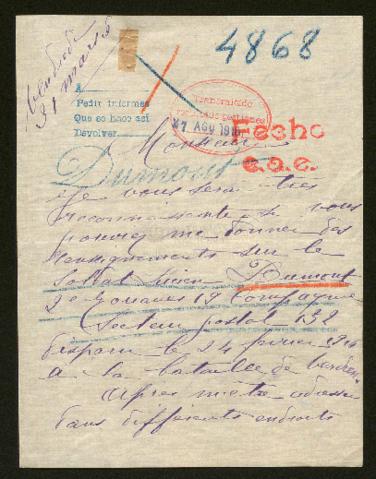 Vendredi
31 mars
4868
A
Pedir informes
Que se hace así
Devolver
27 AGO 1916
Fecho
c.a.e.
Monsieur
Dumont
Je vous serai très
reconnaissante si vous
pouvez me donner des
renseignements sur le
Soldat Dumont
2e Zouaves 19 Compagnie
Secteur postal 132
disparu le 24 février 1916
a la bataille de Verdun
Après m'etre adressée
dans différents endroits